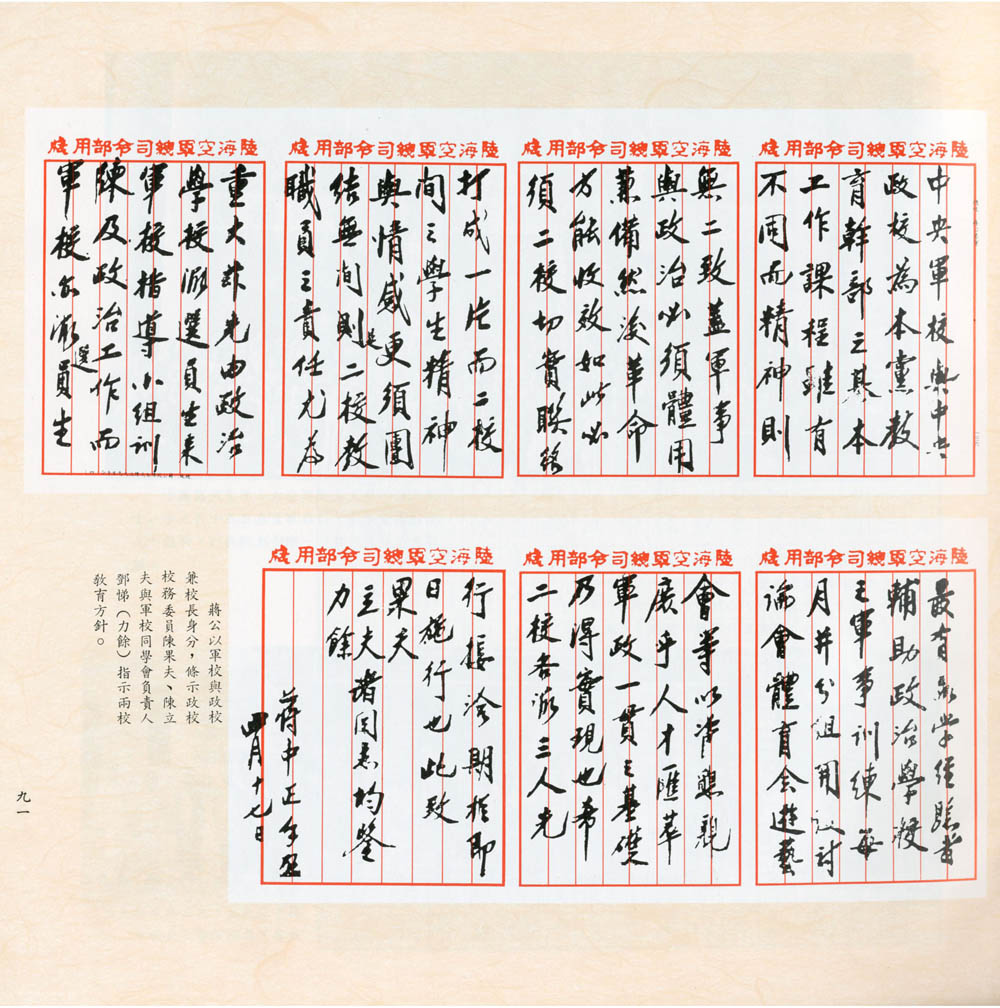 陸海空軍總司令部用牋
中央軍校與中央
政校為本黨教
育幹部之基本
工作課程雖有
不同而精神則
陸海空軍總司令部用牋
無二致蓋軍事
與政治必須體用
兼備然後革命
方能收效如此必
須二校切實聯絡
陸海空軍總司令部用牋
打成一片而二校
間之學生精神
與情感更須團
結無間則是二校教
職員之責任尤為
陸海空軍總司令部用牋
重大非先由政治
學校派選員生來
軍校指導小組訓
練及政治工作而
軍校亦派選員生
陸海空軍總司令部用牋
最有學經驗者
輔助政治學校
之軍事訓練每
月并分組開討
論會體育會遊藝
陸海空軍總司令部用牋
會等以資親
庶乎人才匯萃
軍政一貫之基礎
乃得實現也希
二校各派三人先
陸海空軍總司令部用牋
行接洽期於即
日施行也此致
果夫
立夫諸同志均鑒
力餘
蔣中正手啟
四月十七日
蔣公以軍校與政校
兼校長身分，條示政校
校務委員陳果夫、陳立
夫與軍校同學會負責人
鄧悌（力餘）指示兩校
教育方針。
九一